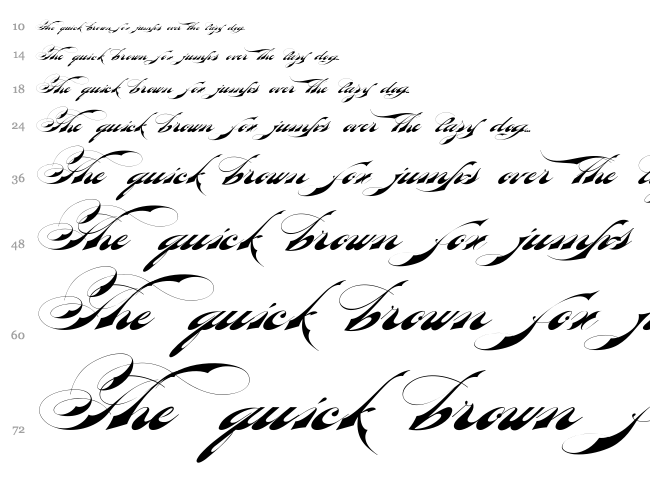 10 The quick brown fox jumps over the lazy dog.
14 The quick brown fox jumps over the lazy dog.
18 The quick brown fox jumps over the lazy dog.
24 The quick brown fox jumps over the lazy dog...
36 The quick brown fox jumps over the l
48 The quick brown fox jumps
60 The quick brown fox j
72 The quick brown f